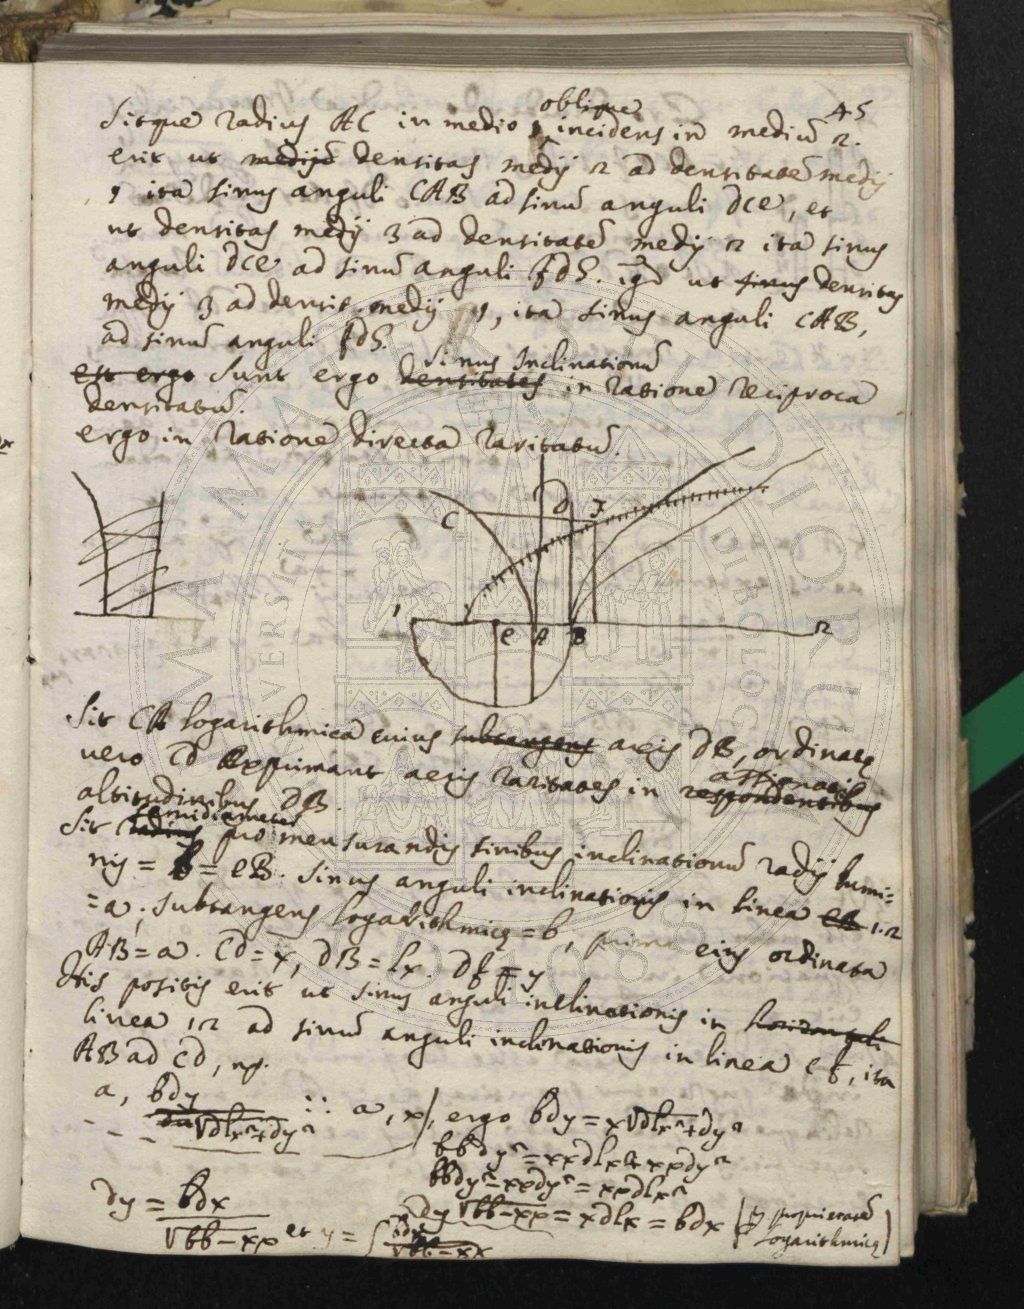 45
Sitque radius AC in medio 1 oblique incidens in mediū 2.
erit ut medijū densitas medij 2 ad densitatē medij
1 ita sinus anguli CAB ad sinū anguli dce, et
ut densitas medij 3 ad densitatē medij 2 ita sinus
anguli dce ad sinū anguli fdg. igr ut sinus densitas
medij 3 ad densit. medij 1, ita sinus anguli CAB,
ad sinū anguli fdg.
est ergo Sunt ergo densitates sinus Inclinationū in ratione reciproca
densitatū.
ergo in ratione directa raritatū.
C D F
1 e A B 2
Sit CA logarithmica cuius subtangens axis DB, ordinatę
vero CD exprimant aeris raritates in respondentibus assignatis
altitudinibus DB.
Sit radius semidiameter pro mensurandis sinibus inclinationū radij lumi=
nis = b = eB. Sinus anguli inclinationis in linea 12
= a; subtangens logarithmicę = b, prima eius ordinata
AB = a. CD = x, DB = lx. Df = y
His positis erit ut sinus anguli inclinationis in horizontali
linea 12 ad sinū anguli inclinationis in linea cf, ita
AB ad CD, np.
a, bdy / √dlx²+dy² :: a, x/, ergo bdy = x√dlx²+dy²
bbdy² = xxdlx²+xxdy²
bbdy²-xxdy² = xxdlx²
dy = bdx / √bb-xx et y = ∫ bdx / √bb-xx
dy√bb-xx = xdlx = bdx (proprietatē
logarithmicę)